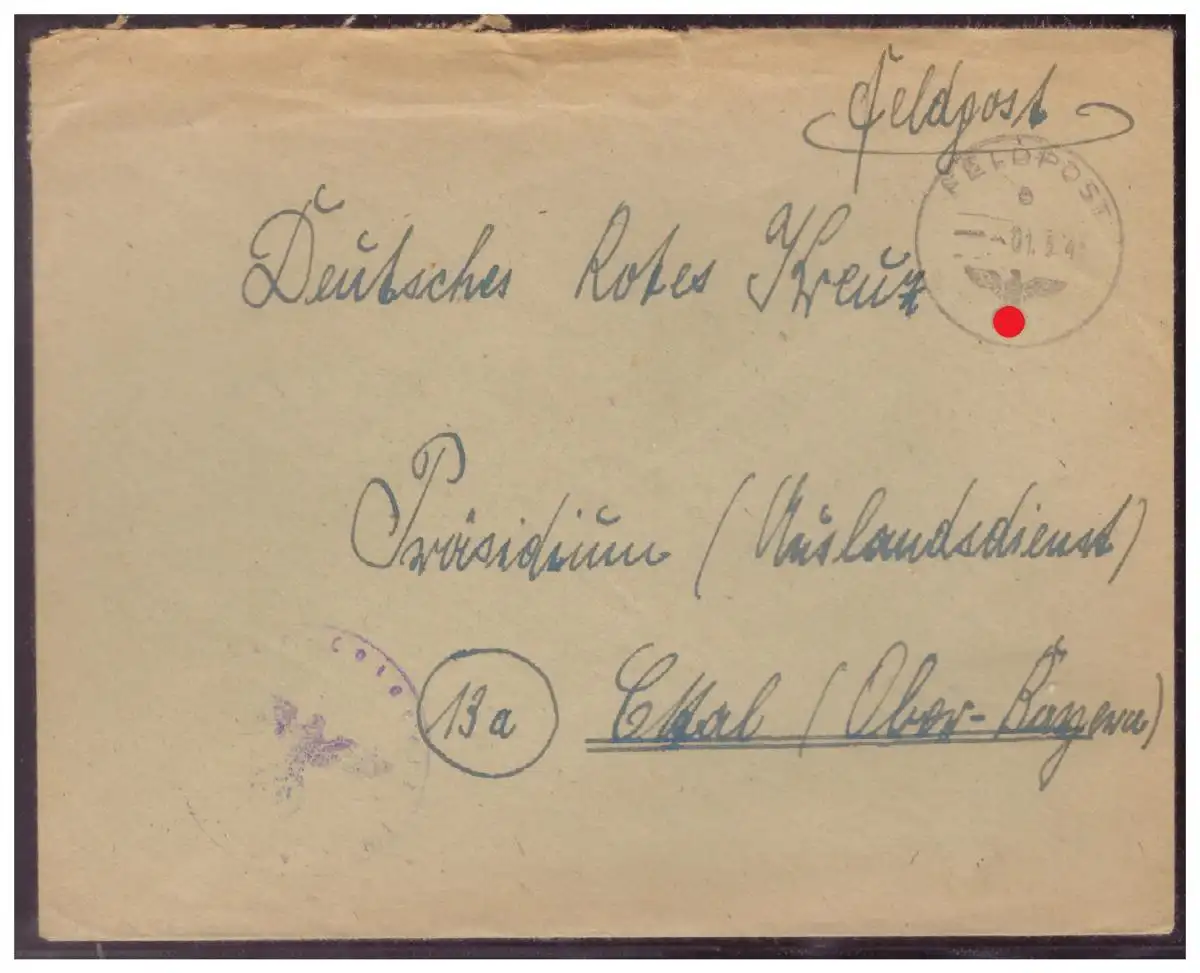 Feldpost
FELDPOST
e
01. 5. 4
Deutsches Rotes Kreuz
Präsidium (Auslandsdienst)
13a Ettal (Ober-Bayern)